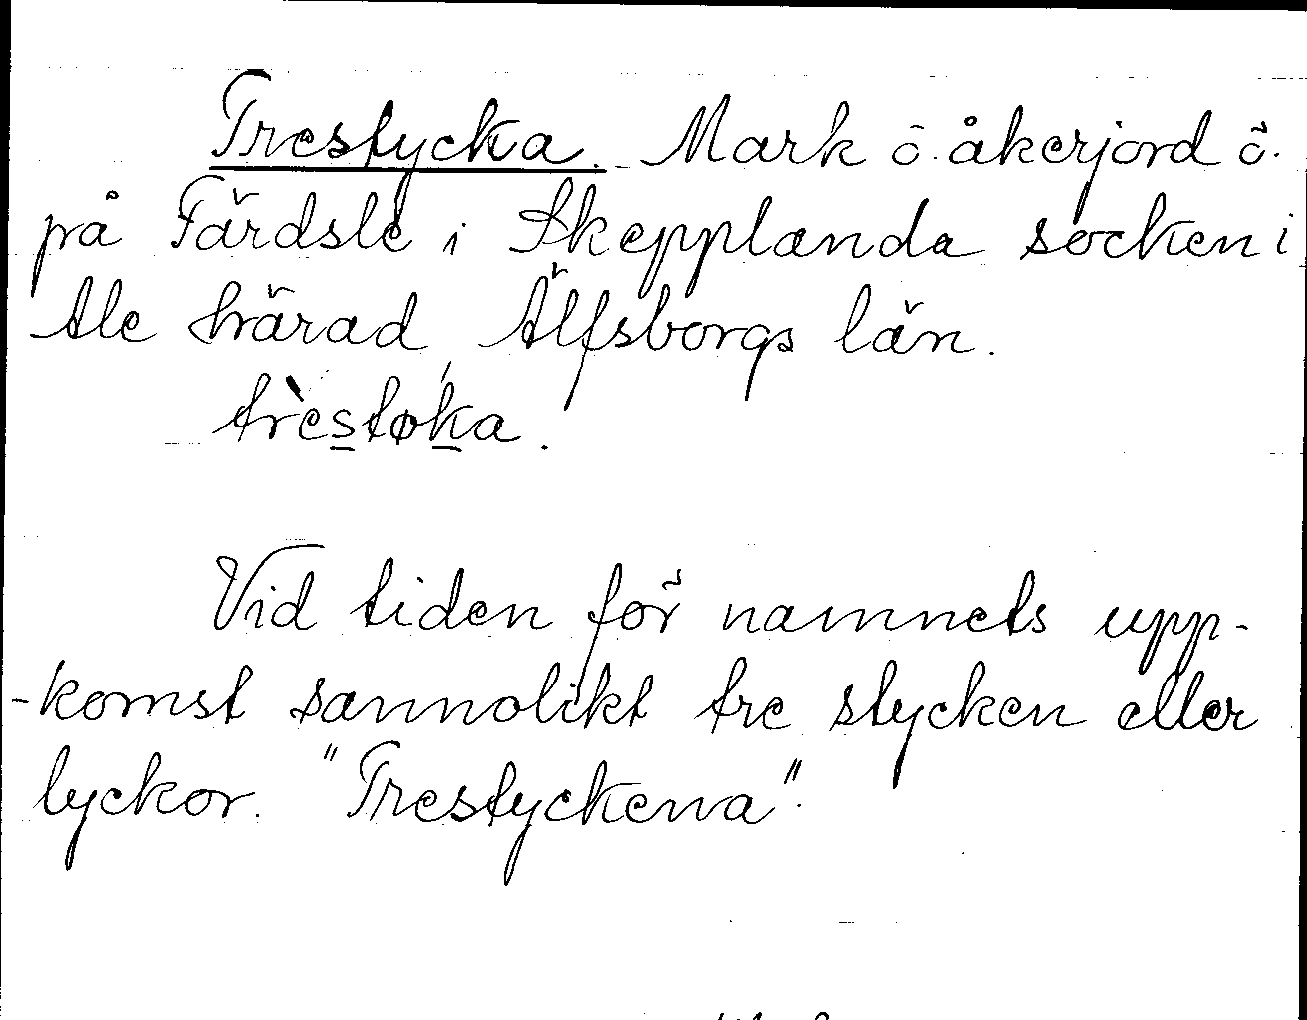 Trestycka. Mark ö. åkerjord ö.
på Färdsle i Skepplanda socken i
Ale härad, Älfsborgs län.
trèstøka.
Vid tiden för namnets upp-
-komst sannolikt tre stycken eller
lyckor. "Trestyckena".